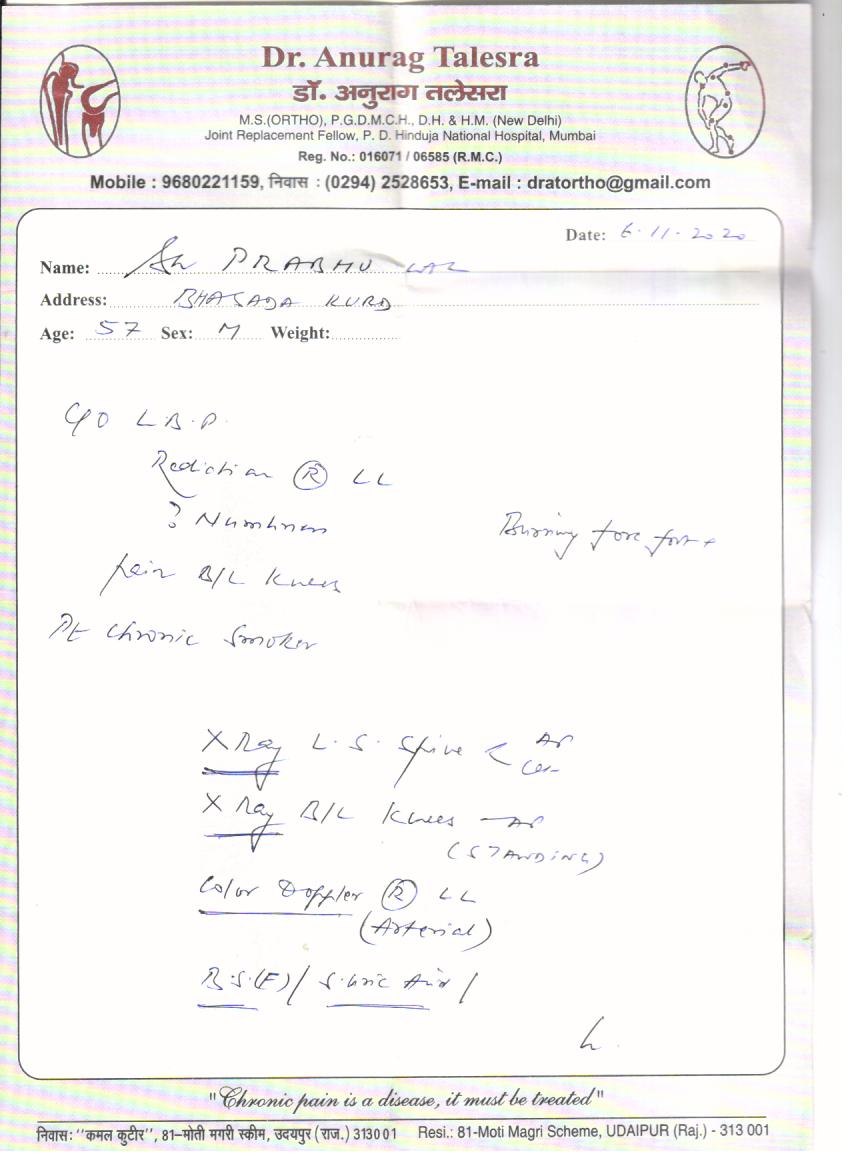 Dr. Anurag Talesra
डॉ. अनुराग तलेसरा
M.S.(ORTHO), P.G.D.M.C.H., D.H. & H.M. (New Delhi)
Joint Replacement Fellow, P. D. Hinduja National Hospital, Mumbai
Reg. No.: 016071 / 06585 (R.M.C.)
Mobile : 9680221159, निवास : (0294) 2528653, E-mail : dratortho@gmail.com
Date: 6-11-2020
Name: PRABHU LAL
Address: KURD
Age: 57 Sex: M Weight:
C/O L.B.P.
Radiation Ⓡ LL
? Numbness
Burning fore foot +
pain B/L Knees
Pt Chronic Smoker
X Ray L.S. Spine < AP
X Ray B/L Knees — AP
(STANDING)
Color Doppler Ⓡ LL
(Arterial)
B.S.(F) / S. Uric Acid /
"Chronic pain is a disease, it must be treated"
निवास: "कमल कुटीर", 81–मोती मगरी स्कीम, उदयपुर (राज.) 313001 Resi.: 81-Moti Magri Scheme, UDAIPUR (Raj.) - 313 001